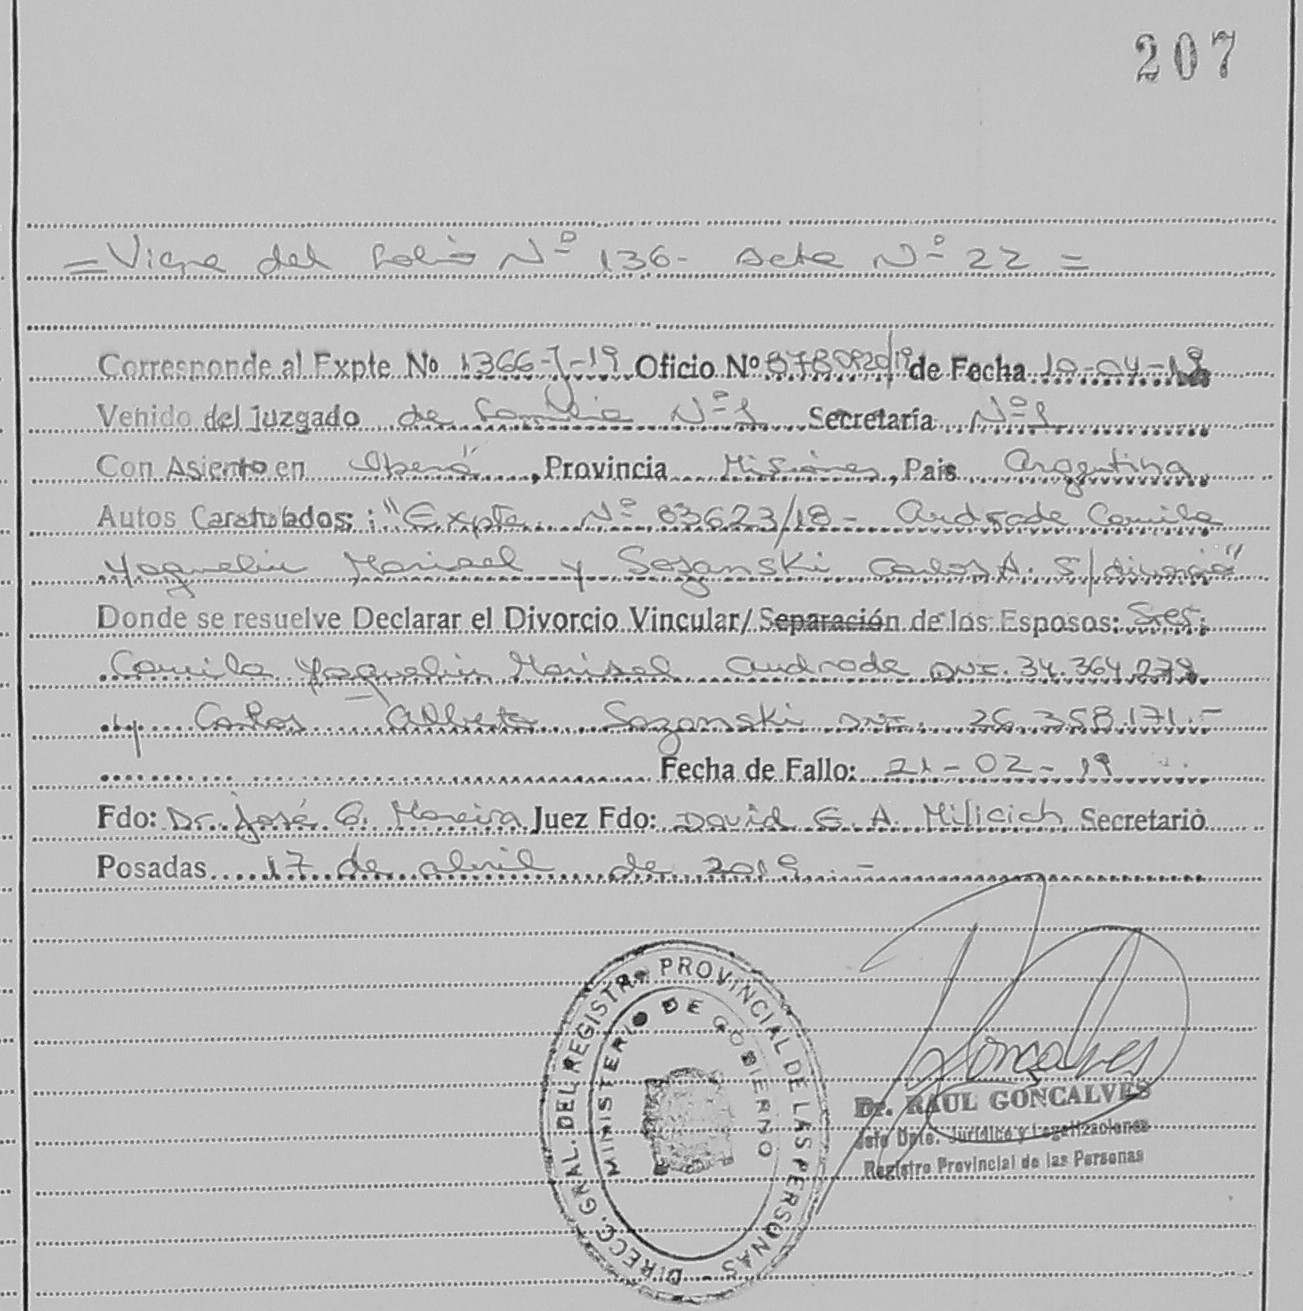 207
= Viene del Folio Nº 136- Acta Nº 22 =
Corresponde al Expte Nº 1366-J-19 Oficio Nº de Fecha 10-04-19
Venido del Juzgado de Familia Nº 1 Secretaría Nº 1
Con Asiento en Oberá, Provincia Misiones, Pais Argentina
Autos Caratulados: "Expte. Nº 83623/18- Andrade Camila
Yaquelin Marisel y Sozanski Carlos A. S/divorcio"
Donde se resuelve Declarar el Divorcio Vincular/ Separación de los Esposos: Sres.
Camila Yaquelin Marisel Andrade DNI. 34.364.279
y Carlos Alberto Sozanski DNI. 26.358.171.-
Fecha de Fallo: 21-02-19
Fdo: Dr. José G. Moreira Juez Fdo: David G. A. Milicich Secretario
Posadas 17 de abril de 2019.-
DIRECC. GRAL. DEL REGISTRO PROVINCIAL DE LAS PERSONAS
MINISTERIO DE GOBIERNO
Goncalves
Dr. RAUL GONCALVES
Jefe Dpto. Jurídico y Legalizaciones
Registro Provincial de las Personas